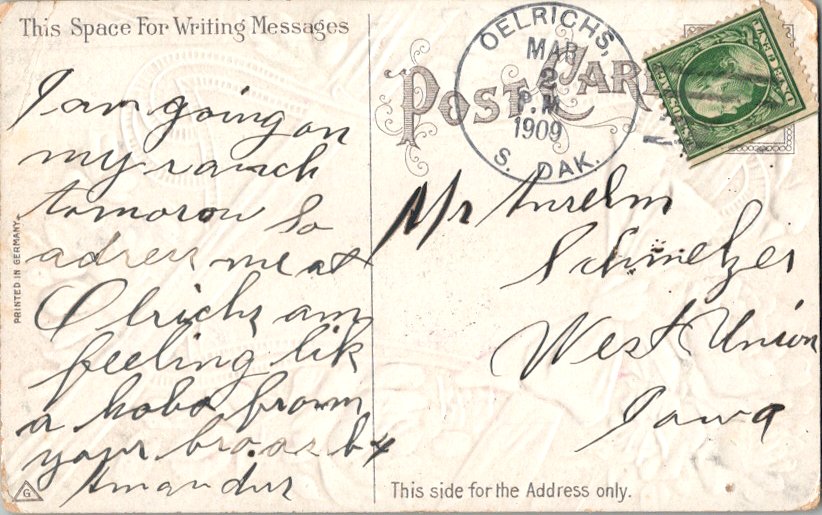 This Space For Writing Messages
I am going on
my ranch
tomorow so
adress me at
Olrichs am
feeling lik
a hobo from
your bro. as b4
Amandus
PRINTED IN GERMANY
G
POST CARD
OELRICHS,
MAR
2
P.M
1909
S. DAK.
Mr Anselm
Schmelzer
West Union
Iowa
This side for the Address only.